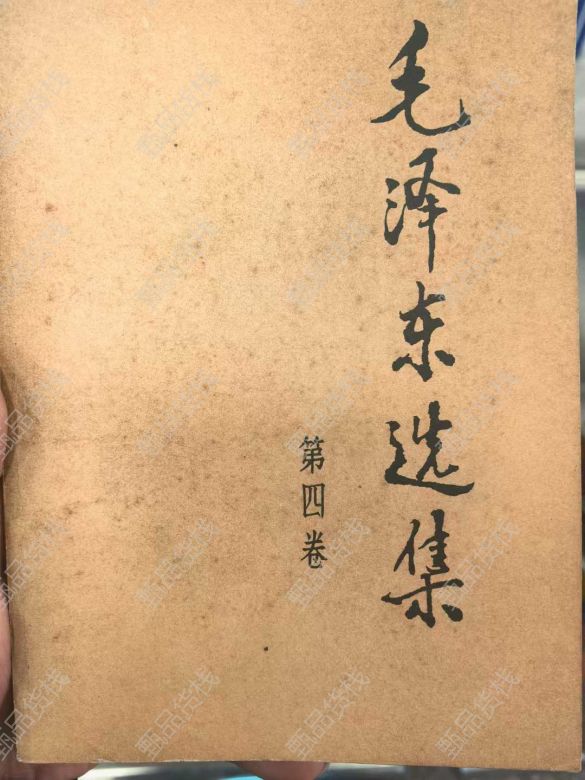 毛泽东选集
第四卷
甄品货栈